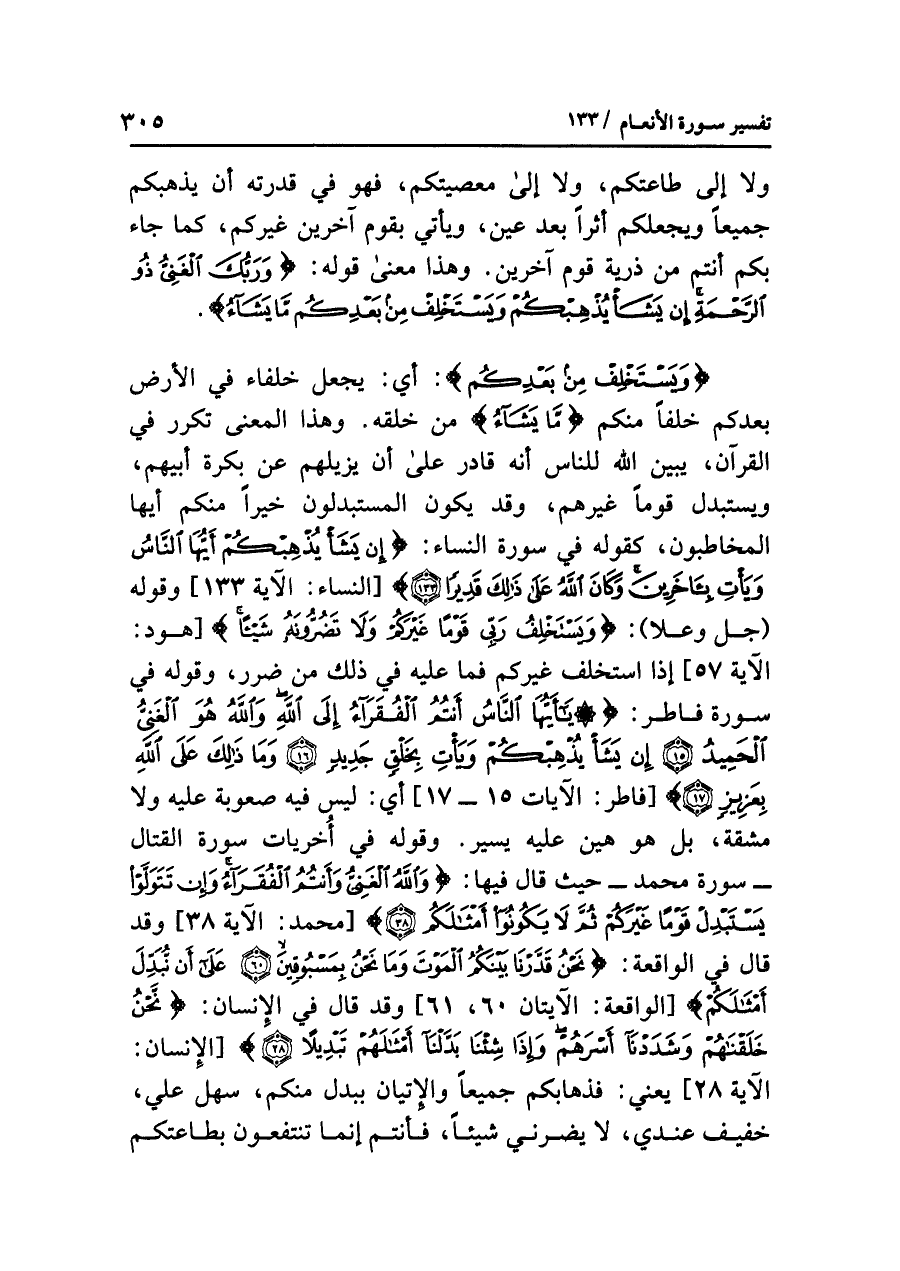 تفسير سورة الأنعام / ١٣٣ ٣٠٥
ولا إلى طاعتكم، ولا إلىٰ معصيتكم، فهو في قدرته أن يذهبكم
جميعاً ويجعلكم أثراً بعد عين، ويأتي بقوم آخرين غيركم، كما جاء
بكم أنتم من ذرية قوم آخرين. وهذا معنىٰ قوله: ﴿ وَرَبُّكَ ٱلْغَنِيُّ ذُو
ٱلرَّحْمَةِۚ إِن يَشَأْ يُذْهِبْكُمْ وَيَسْتَخْلِفْ مِنۢ بَعْدِكُم مَّا يَشَآءُ﴾ .
﴿وَيَسْتَخْلِفْ مِنۢ بَعْدِكُم ﴾: أي: يجعل خلفاء في الأرض
بعدكم خلفاً منكم ﴿ مَّا يَشَآءُ ﴾ من خلقه. وهذا المعنى تكرر في
القرآن، يبين الله للناس أنه قادر علىٰ أن يزيلهم عن بكرة أبيهم،
ويستبدل قوماً غيرهم، وقد يكون المستبدلون خيراً منكم أيها
المخاطبون، كقوله في سورة النساء: ﴿ إِن يَشَأْ يُذْهِبْكُمْ أَيُّهَا ٱلنَّاسُ
وَيَأْتِ بِـَٔاخَرِينَۚ وَكَانَ ٱللَّهُ عَلَىٰ ذَٰلِكَ قَدِيرًا ١٣٣﴾ [النساء: الآية ١٣٣] وقوله
(جل وعلا): ﴿ وَيَسْتَخْلِفُ رَبِّي قَوْمًا غَيْرَكُمْ وَلَا تَضُرُّونَهُۥ شَيْـًٔاۚ ﴾ [هود:
الآية ٥٧] إذا استخلف غيركم فما عليه في ذلك من ضرر، وقوله في
سورة فاطر: ﴿ ۞يَٰٓأَيُّهَا ٱلنَّاسُ أَنتُمُ ٱلْفُقَرَآءُ إِلَى ٱللَّهِۖ وَٱللَّهُ هُوَ ٱلْغَنِيُّ
ٱلْحَمِيدُ ١٥ إِن يَشَأْ يُذْهِبْكُمْ وَيَأْتِ بِخَلْقٍ جَدِيدٍ ١٦ وَمَا ذَٰلِكَ عَلَى ٱللَّهِ
بِعَزِيزٍ ١٧﴾ [فاطر: الآيات ١٥ ــ ١٧] أي: ليس فيه صعوبة عليه ولا
مشقة، بل هو هين عليه يسير. وقوله في أُخريات سورة القتال
ــ سورة محمد ــ حيث قال فيها: ﴿ وَٱللَّهُ ٱلْغَنِيُّ وَأَنتُمُ ٱلْفُقَرَآءُۚ وَإِن تَتَوَلَّوْا۟
يَسْتَبْدِلْ قَوْمًا غَيْرَكُمْ ثُمَّ لَا يَكُونُوٓا۟ أَمْثَٰلَكُم ٣٨ ﴾ [محمد: الآية ٣٨] وقد
قال في الواقعة: ﴿ نَحْنُ قَدَّرْنَا بَيْنَكُمُ ٱلْمَوْتَ وَمَا نَحْنُ بِمَسْبُوقِينَۙ ٦٠ عَلَىٰٓ أَن نُّبَدِّلَ
أَمْثَٰلَكُمْ﴾ [الواقعة: الآيتان ٦٠، ٦١] وقد قال في الإنسان: ﴿ نَّحْنُ
خَلَقْنَٰهُمْ وَشَدَدْنَآ أَسْرَهُمْۖ وَإِذَا شِئْنَا بَدَّلْنَآ أَمْثَٰلَهُمْ تَبْدِيلًا ٢٨ ﴾ [الإنسان:
الآية ٢٨] يعني: فذهابكم جميعاً والإتيان ببدل منكم، سهل علي،
خفيف عندي، لا يضرني شيئاً، فأنتم إنما تنتفعون بطاعتكم